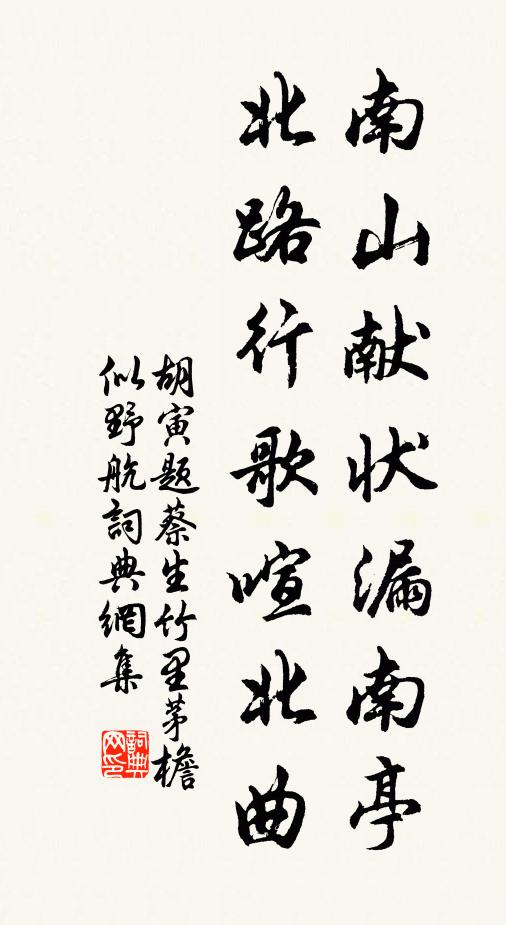 南山献状漏南亭
北路行歌喧北曲
胡寅题蔡生竹里茅檐
似野航詞典網集
詞典网印